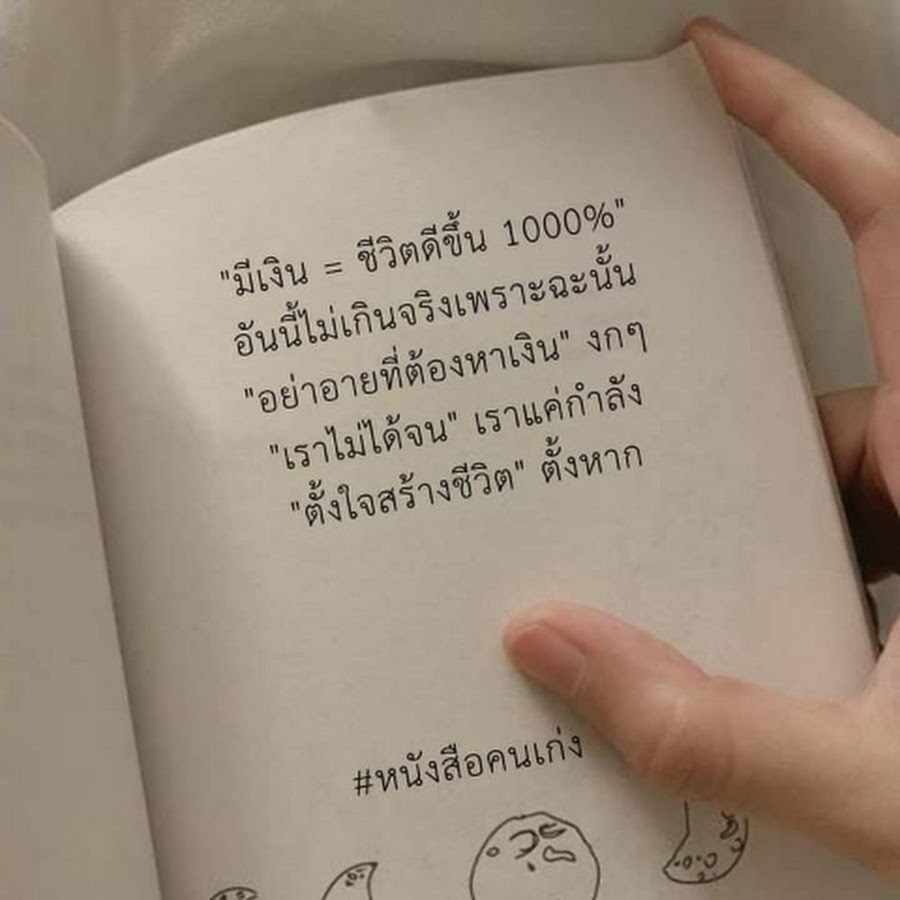 "มีเงิน = ชีวิตดีขึ้น 1000%"
อันนี้ไม่เกินจริงเพราะฉะนั้น
"อย่าอายที่ต้องหาเงิน" งกๆ
"เราไม่ได้จน" เราแค่กำลัง
"ตั้งใจสร้างชีวิต" ตั้งหาก
#หนังสือคนเก่ง